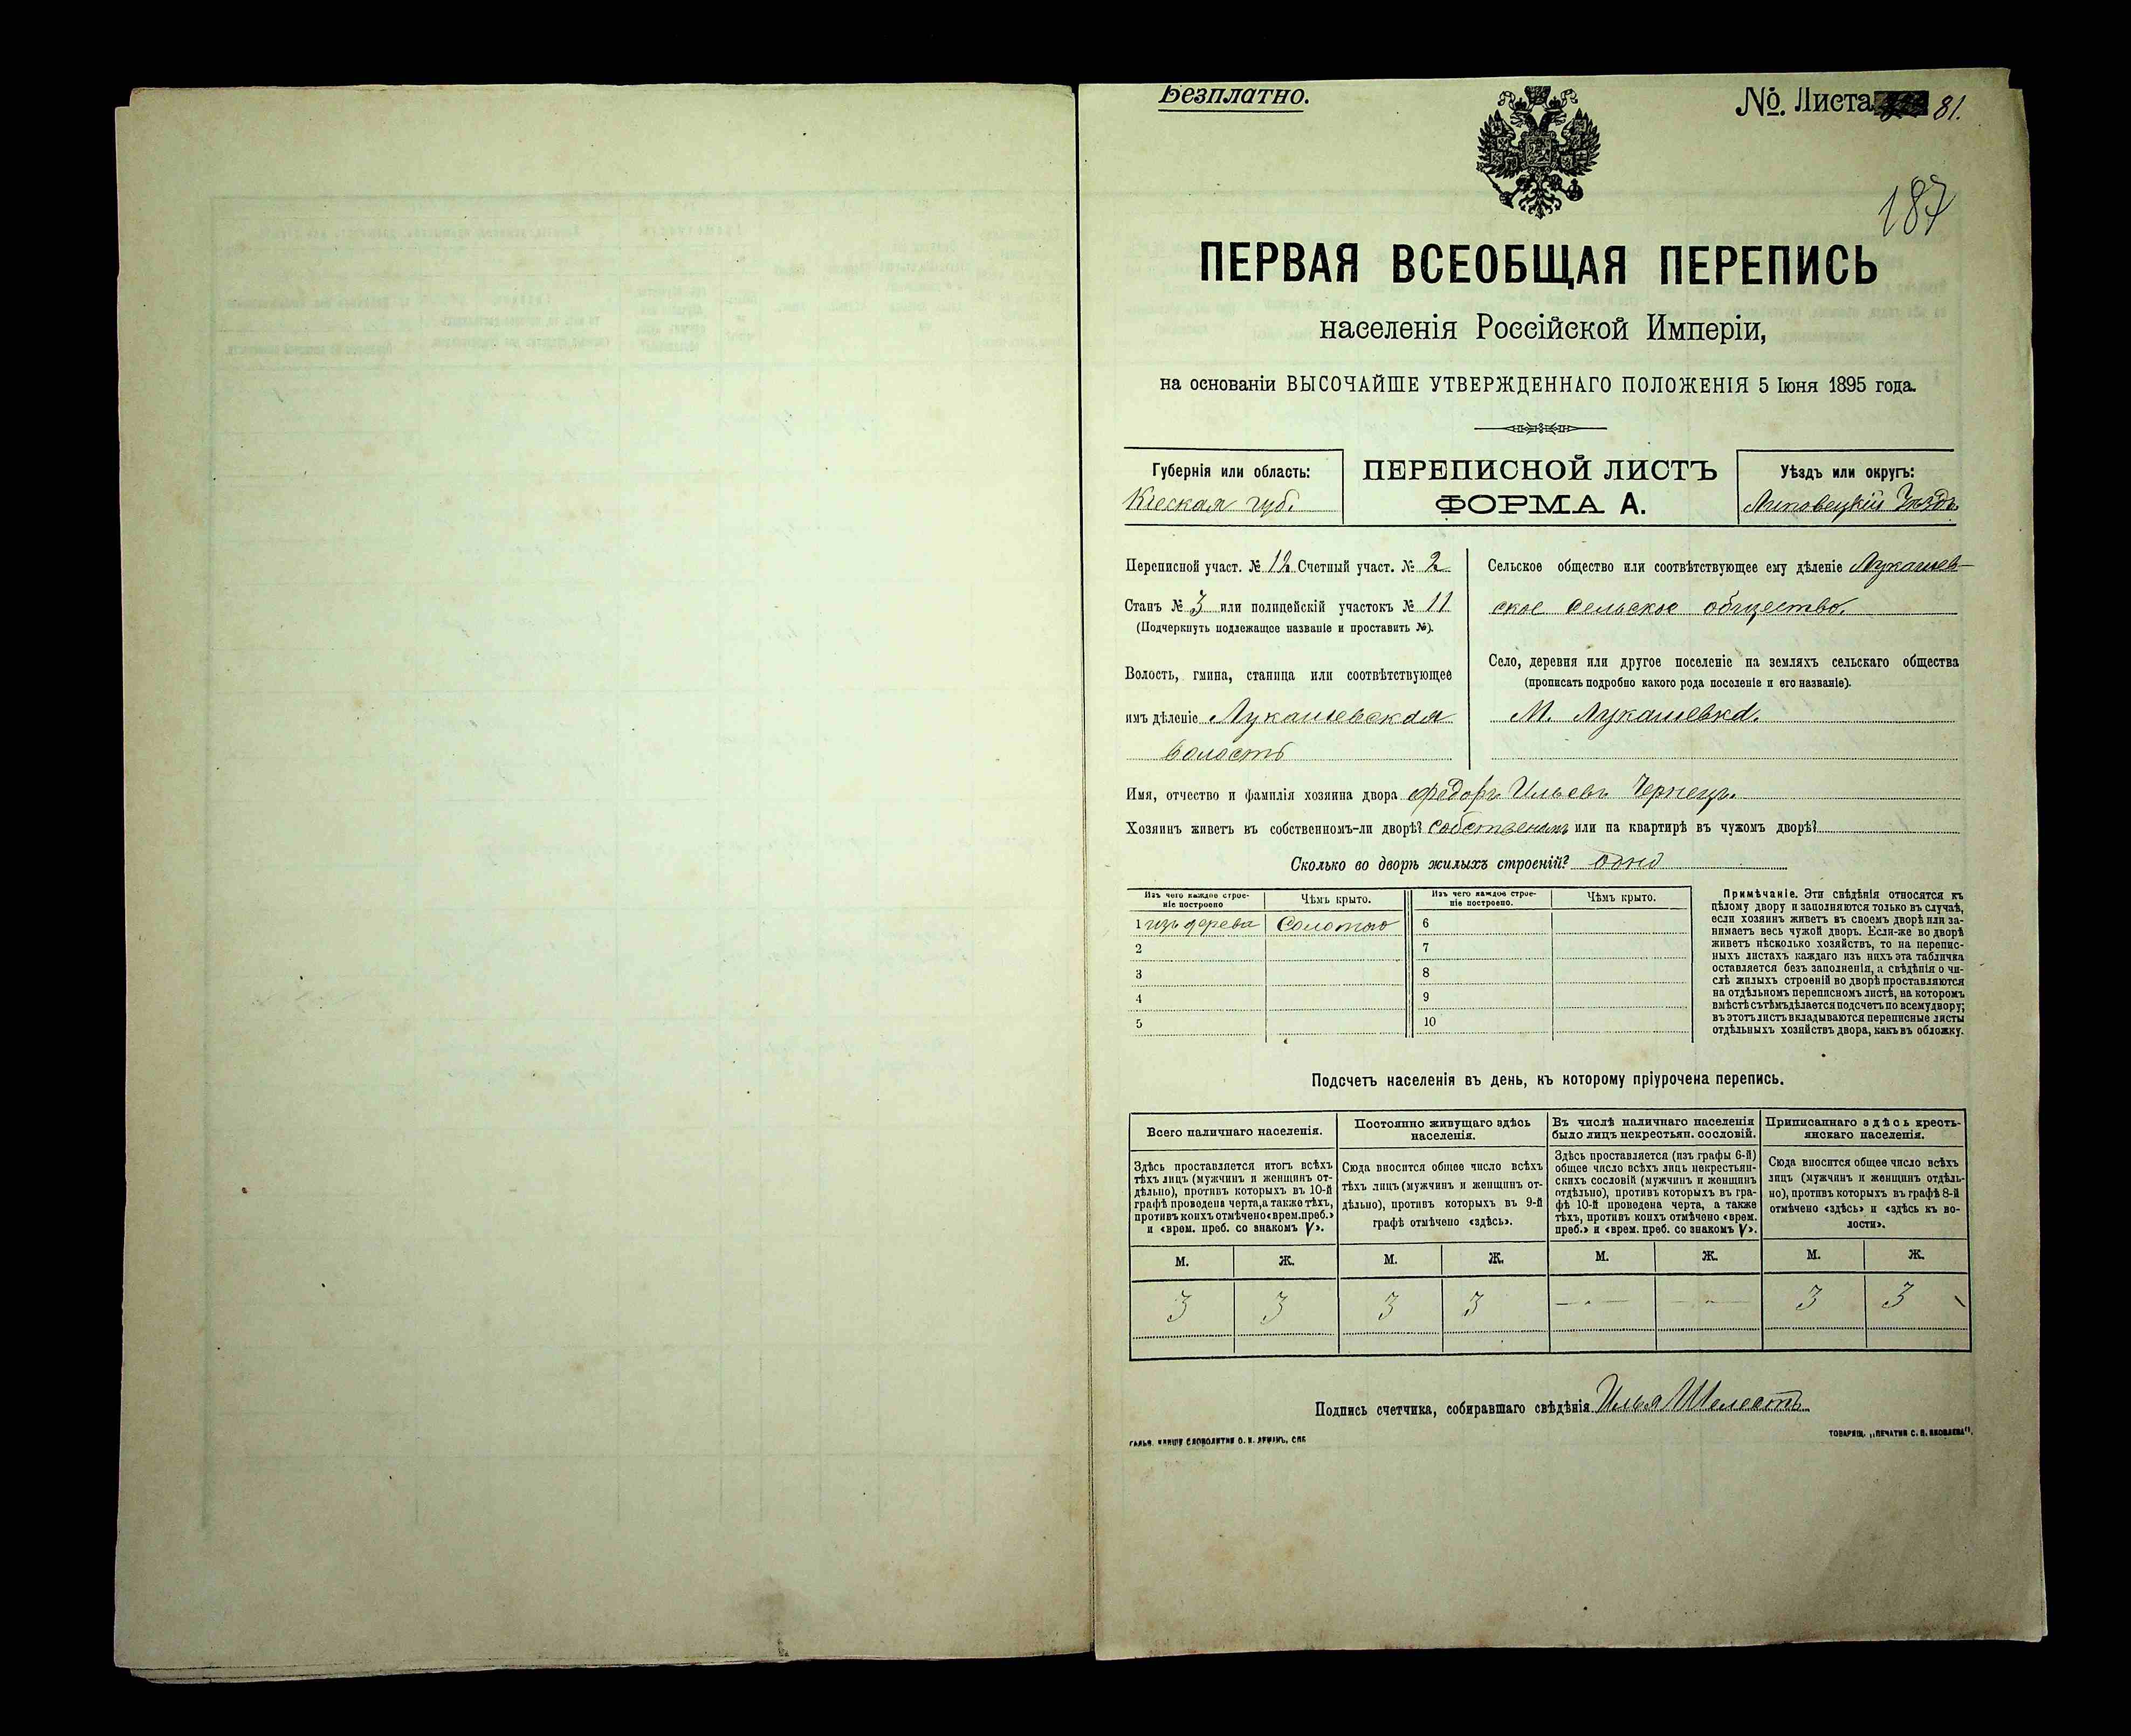 Безплатно.
№. Листа 81.
187
ПЕРВАЯ ВСЕОБЩАЯ ПЕРЕПИСЬ
населенія Россійской Имперіи,
на основаніи ВЫСОЧАЙШЕ УТВЕРЖДЕННАГО ПОЛОЖЕНІЯ 5 Іюня 1895 года.
Губернія или область:
Кіеская губ.
ПЕРЕПИСНОЙ ЛИСТЪ
ФОРМА А.
Уѣздъ или округъ:
Липовецкій Уѣздъ
Переписной участ. № 12 Счетный участ. № 2
Станъ № 3 или полицейскій участокъ № 11
(Подчеркнуть подлежащее названіе и проставить №).
Волость, гмина, станица или соотвѣтствующее
имъ дѣленіе Лукашевская
волость
Сельское общество или соотвѣтствующее ему дѣленіе Лукашев-
ское сельское общество.
Село, деревня или другое поселеніе на земляхъ сельскаго общества
(прописать подробно какого рода поселеніе и его названіе).
М. Лукашевка.
Имя, отчество и фамилія хозяина двора Федоръ Ильевъ Чернецъ.
Хозяинъ живетъ въ собственномъ-ли дворѣ? собственомъ или на квартирѣ въ чужомъ дворѣ?
Сколько во дворѣ жилыхъ строеній? одно
Изъ чего каждое строе-
ніе построено
Чѣмъ крыто.
Изъ чего каждое строе-
ніе построено.
Чѣмъ крыто.
1 изъ дерева Соломою 6
2 7
3 8
4 9
5 10
Примѣчаніе. Эти свѣдѣнія относятся къ
цѣлому двору и заполняются только въ случаѣ,
если хозяинъ живетъ въ своемъ дворѣ или за-
нимаетъ весь чужой дворъ. Если-же во дворѣ
живетъ нѣсколько хозяйствъ, то на перепис-
ныхъ листахъ каждаго изъ нихъ эта табличка
оставляется безъ заполненія, а свѣдѣнія о чи-
слѣ жилыхъ строеній во дворѣ проставляются
на отдѣльномъ переписномъ листѣ, на которомъ
вмѣстѣ съ тѣмъ дѣлается подсчетъ по всему двору;
въ этотъ листъ вкладываются переписные листы
отдѣльныхъ хозяйствъ двора, какъ въ обложку.
Подсчетъ населенія въ день, къ которому пріурочена перепись.
Всего наличнаго населенія.
Здѣсь проставляется итогъ всѣхъ
тѣхъ лицъ (мужчинъ и женщинъ от-
дѣльно), противъ которыхъ въ 10-й
графѣ проведена черта, а также тѣхъ,
противъ коихъ отмѣчено «врем. преб.»
и «врем. преб. со знакомъ V».
Постоянно живущаго здѣсь
населенія.
Сюда вносится общее число всѣхъ
тѣхъ лицъ (мужчинъ и женщинъ от-
дѣльно), противъ которыхъ въ 9-й
графѣ отмѣчено «здѣсь».
Въ числѣ наличнаго населенія
было лицъ некрестьян. сословій.
Здѣсь проставляется (изъ графы 6-й)
общее число всѣхъ лицъ некрестьян-
скихъ сословій (мужчинъ и женщинъ
отдѣльно), противъ которыхъ въ гра-
фѣ 10-й проведена черта, а также
тѣхъ, противъ коихъ отмѣчено «врем.
преб.» и «врем. преб. со знакомъ V».
Приписаннаго здѣсь кресть-
янскаго населенія.
Сюда вносится общее число всѣхъ
лицъ (мужчинъ и женщинъ отдѣль-
но), противъ которыхъ въ графѣ 8-й
отмѣчено «здѣсь» и «здѣсь къ во-
лости».
М. Ж. М. Ж. М. Ж. М. Ж.
3 3 3 3 — — 3 3
Подпись счетчика, собиравшаго свѣдѣнія Илья Шелестъ
ТОВАРИЩ. „ПЕЧАТНЯ С. П. ЯКОВЛЕВА".